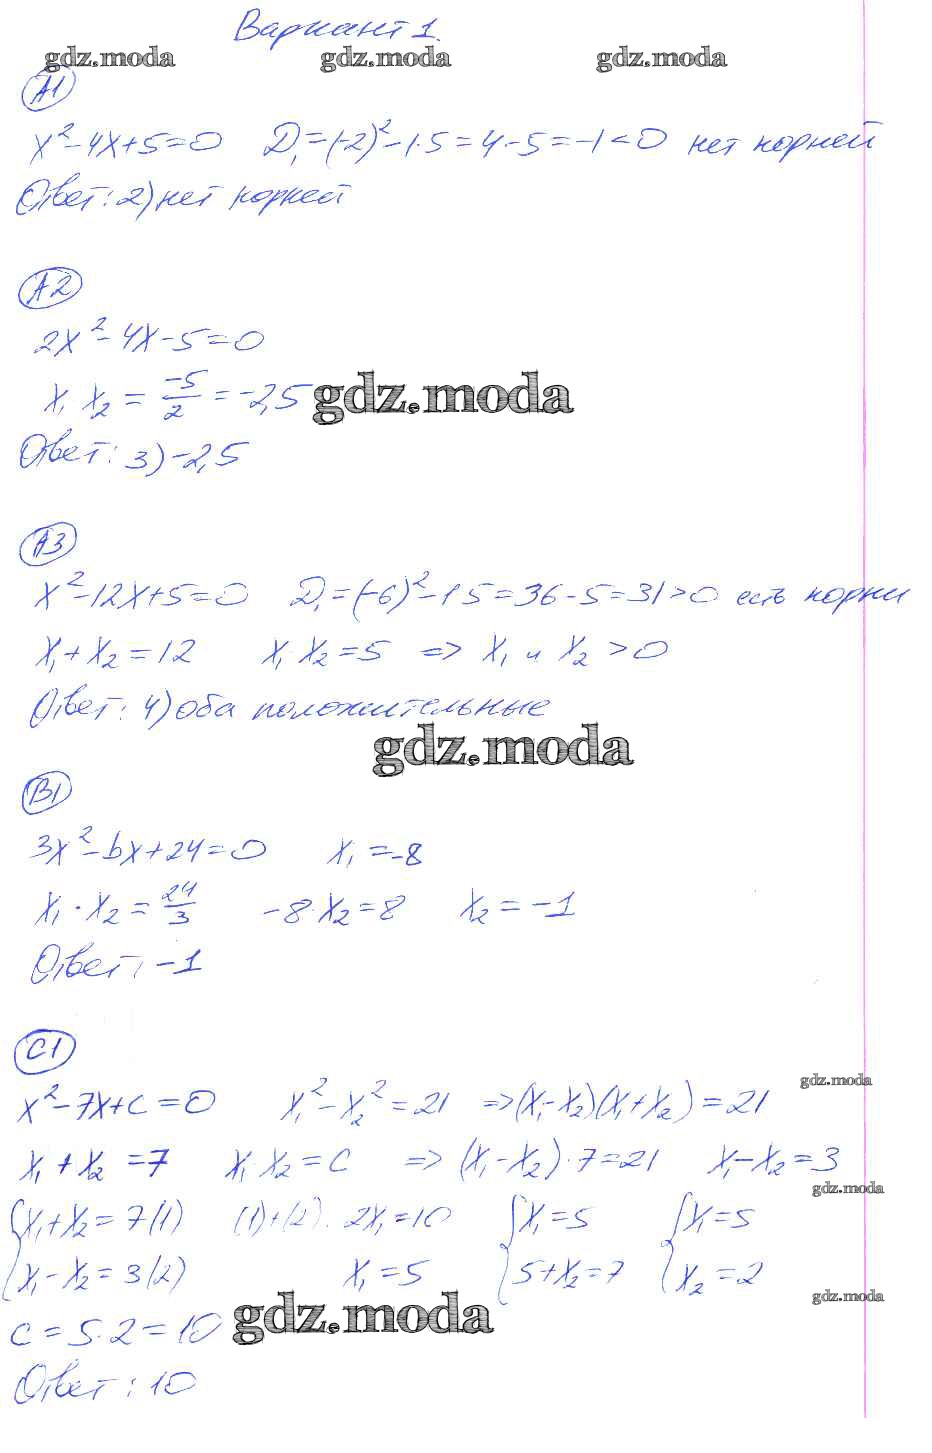 Вариант 1.
gdz.moda gdz.moda gdz.moda
А1
x²-4x+5=0 D₁=(-2)²-1·5=4-5=-1<0 нет корней
Ответ: 2) нет корней
А2
2x²-4x-5=0
x₁ x₂ = -5/2 = -2,5 gdz.moda
Ответ: 3) -2,5
А3
x²-12x+5=0 D₁=(-6)²-1·5=36-5=31>0 есть корни
x₁+x₂=12 x₁ x₂=5 => x₁ и x₂ >0
Ответ: 4) оба положительные
gdz.moda
В1
3x²-bx+24=0 x₁=-8
x₁·x₂=24/3 -8·x₂=8 x₂=-1
Ответ: -1
С1
gdz.moda
x²-7x+c=0 x₁²-x₂²=21 =>(x₁-x₂)(x₁+x₂)=21
x₁+x₂=7 x₁ x₂=c => (x₁-x₂)·7=21 x₁-x₂=3
gdz.moda
{x₁+x₂=7 (1) (1)+(2): 2x₁=10 {x₁=5 {x₁=5
x₁-x₂=3 (2) x₁=5 5+x₂=7 x₂=2
gdz.moda
c=5·2=10 gdz.moda
Ответ: 10